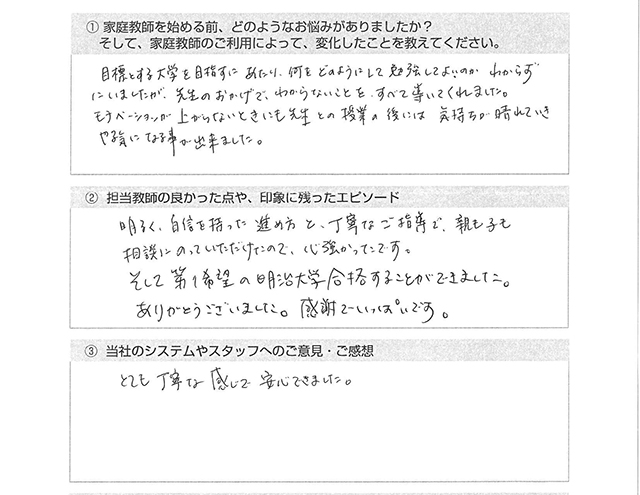 ① 家庭教師を始める前、どのようなお悩みがありましたか？
そして、家庭教師のご利用によって、変化したことを教えてください。
目標とする大学を目指すにあたり、何をどのようにして勉強してよいのかわからず
にいましたが、先生のおかげで、わからないことを、すべて導いてくれました。
モチベーションが上がらないときにも先生との授業の後には気持ちが晴れていき
やる気になる事が出来ました。
② 担当教師の良かった点や、印象に残ったエピソード
明るく、自信を持った進め方と、丁寧なご指導で、親も子も
相談にのっていただけたので、心強かったです。
そして第1希望の明治大学合格することができました。
ありがとうございました。感謝でいっぱいです。
③ 当社のシステムやスタッフへのご意見・ご感想
とても丁寧な感じで安心できました。